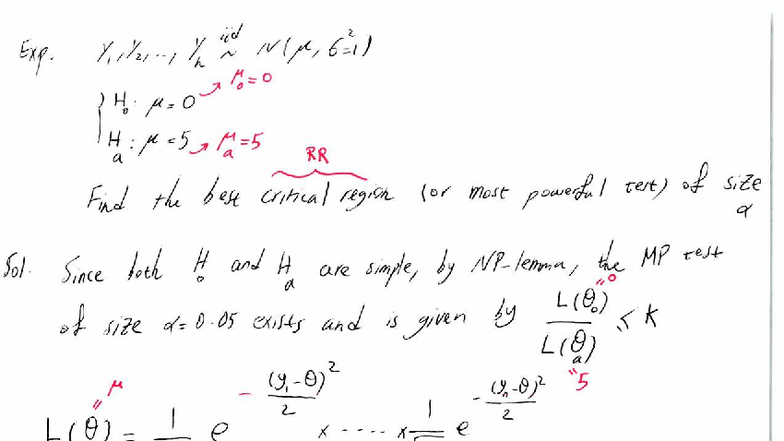 Exp. Y₁, Y₂, ..., Yₙ iid ~ N(μ, σ²=1)
H₀: μ = 0 → μ₀ = 0
Hₐ: μ = 5 → μₐ = 5
RR
Find the best critical region (or most powerful test) of size α
Sol. Since both H₀ and Hₐ are simple, by NP-lemma, the MP test
of size α = 0.05 exists and is given by L(θ₀)/L(θₐ) ≤ K
"0
"5
μ
L(θ) = 1/ e^-(y₁-θ)²/2 × ---- × 1/√ e^-(yₙ-θ)²/2